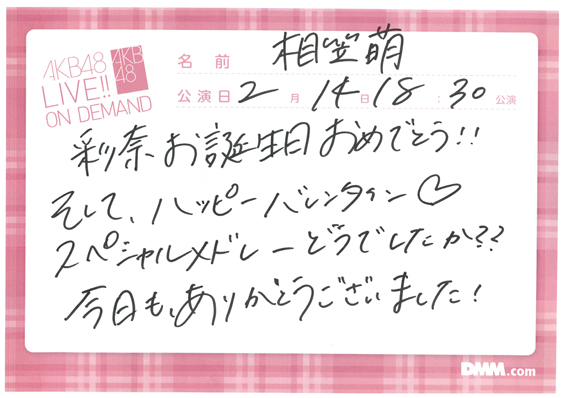 AKB48
LIVE!!
ON DEMAND
AKB
48
名前 相笠萌
公演日 2月14日18:30公演
彩奈お誕生日おめでとう!!
そして、ハッピーバレンタイン♡
スペシャルメドレーどうでしたか??
今日も、ありがとうございました!
DMM.com